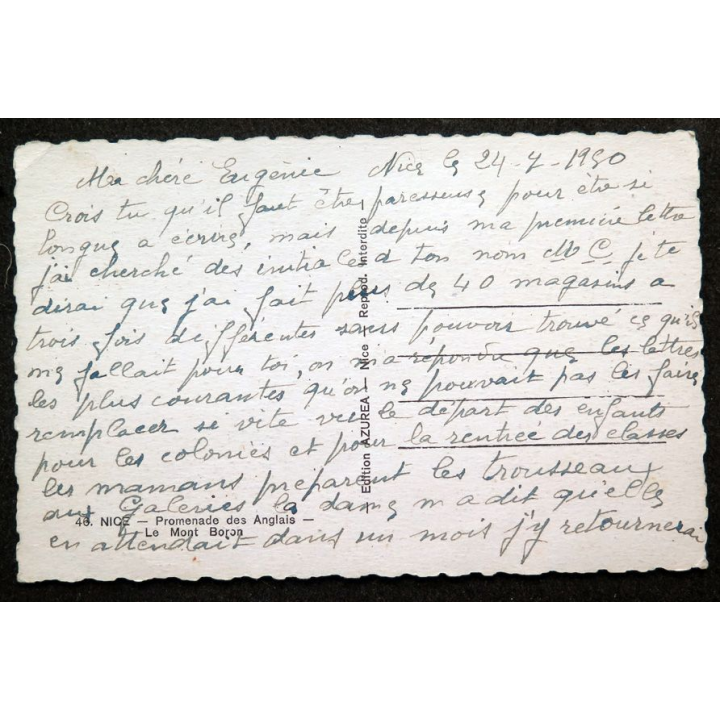 Ma chère Eugénie Nice le 24-7-1950
Crois tu qu'il faut être paresseuse pour être si
longue a écrire, mais depuis ma première lettre
j'ai cherché des initiales a ton nom C je te
dirai que j'ai fait plus de 40 magasins a
trois fois différentes sans pouvoir trouvé ce qu'il
me fallait pour toi, on m'a répondu que les lettres
les plus courantes qu'on ne pouvait pas les faire
remplacer si vite vu le départ des enfants
pour les colonies et pour la rentrée des classes
les mamans préparent les trousseaux
aux Galeries la dame m a dit qu'elle
en attendait dans un mois j'y retournerai
46. NICE — Promenade des Anglais —
Le Mont Boron
Edition AZUREA — Nice — Reprod. Interdite